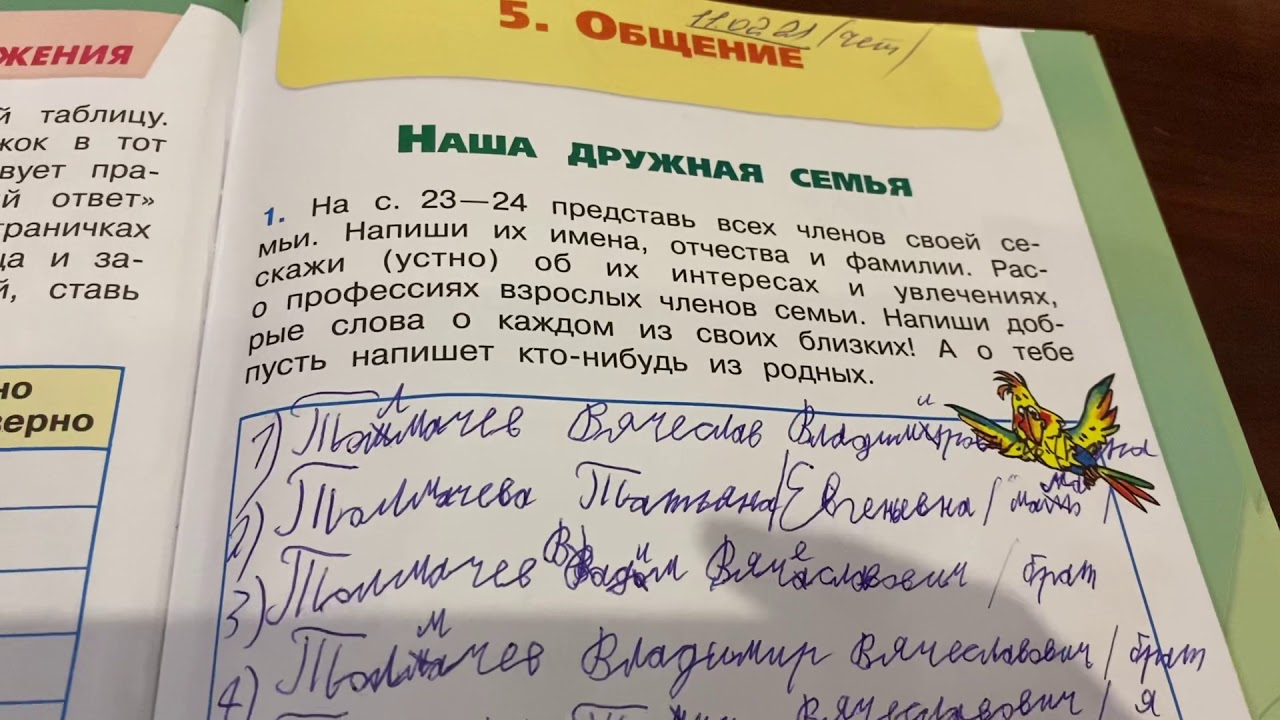 ЖЕНИЯ
й таблицу.
жок в тот
вует пра-
й ответ»
траничках
ца и за-
й, ставь
но
верно
11.02 21 /чет/
5. Общение
Наша дружная семья
1. На с. 23—24 представь всех членов своей се-
мьи. Напиши их имена, отчества и фамилии. Рас-
скажи (устно) об их интересах и увлечениях,
о профессиях взрослых членов семьи. Напиши доб-
рые слова о каждом из своих близких! А о тебе
пусть напишет кто-нибудь из родных.
1) Толмачев Вячеслав
2) Толмачева Татьяна Евгеньевна /
3) Толмачев Вадим Вячеславович / брат
4) Толмачев Владимир Вячеславович / брат
Вячеславович / я